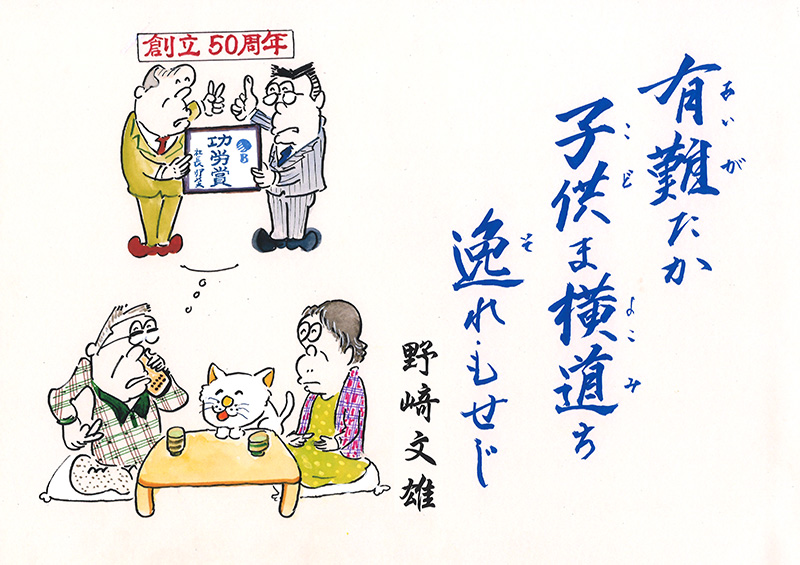 有難たか
あいが
子供ま横道ち
こど
よこみ
逸れもせじ
そ
野﨑文雄
創立50周年
功労賞